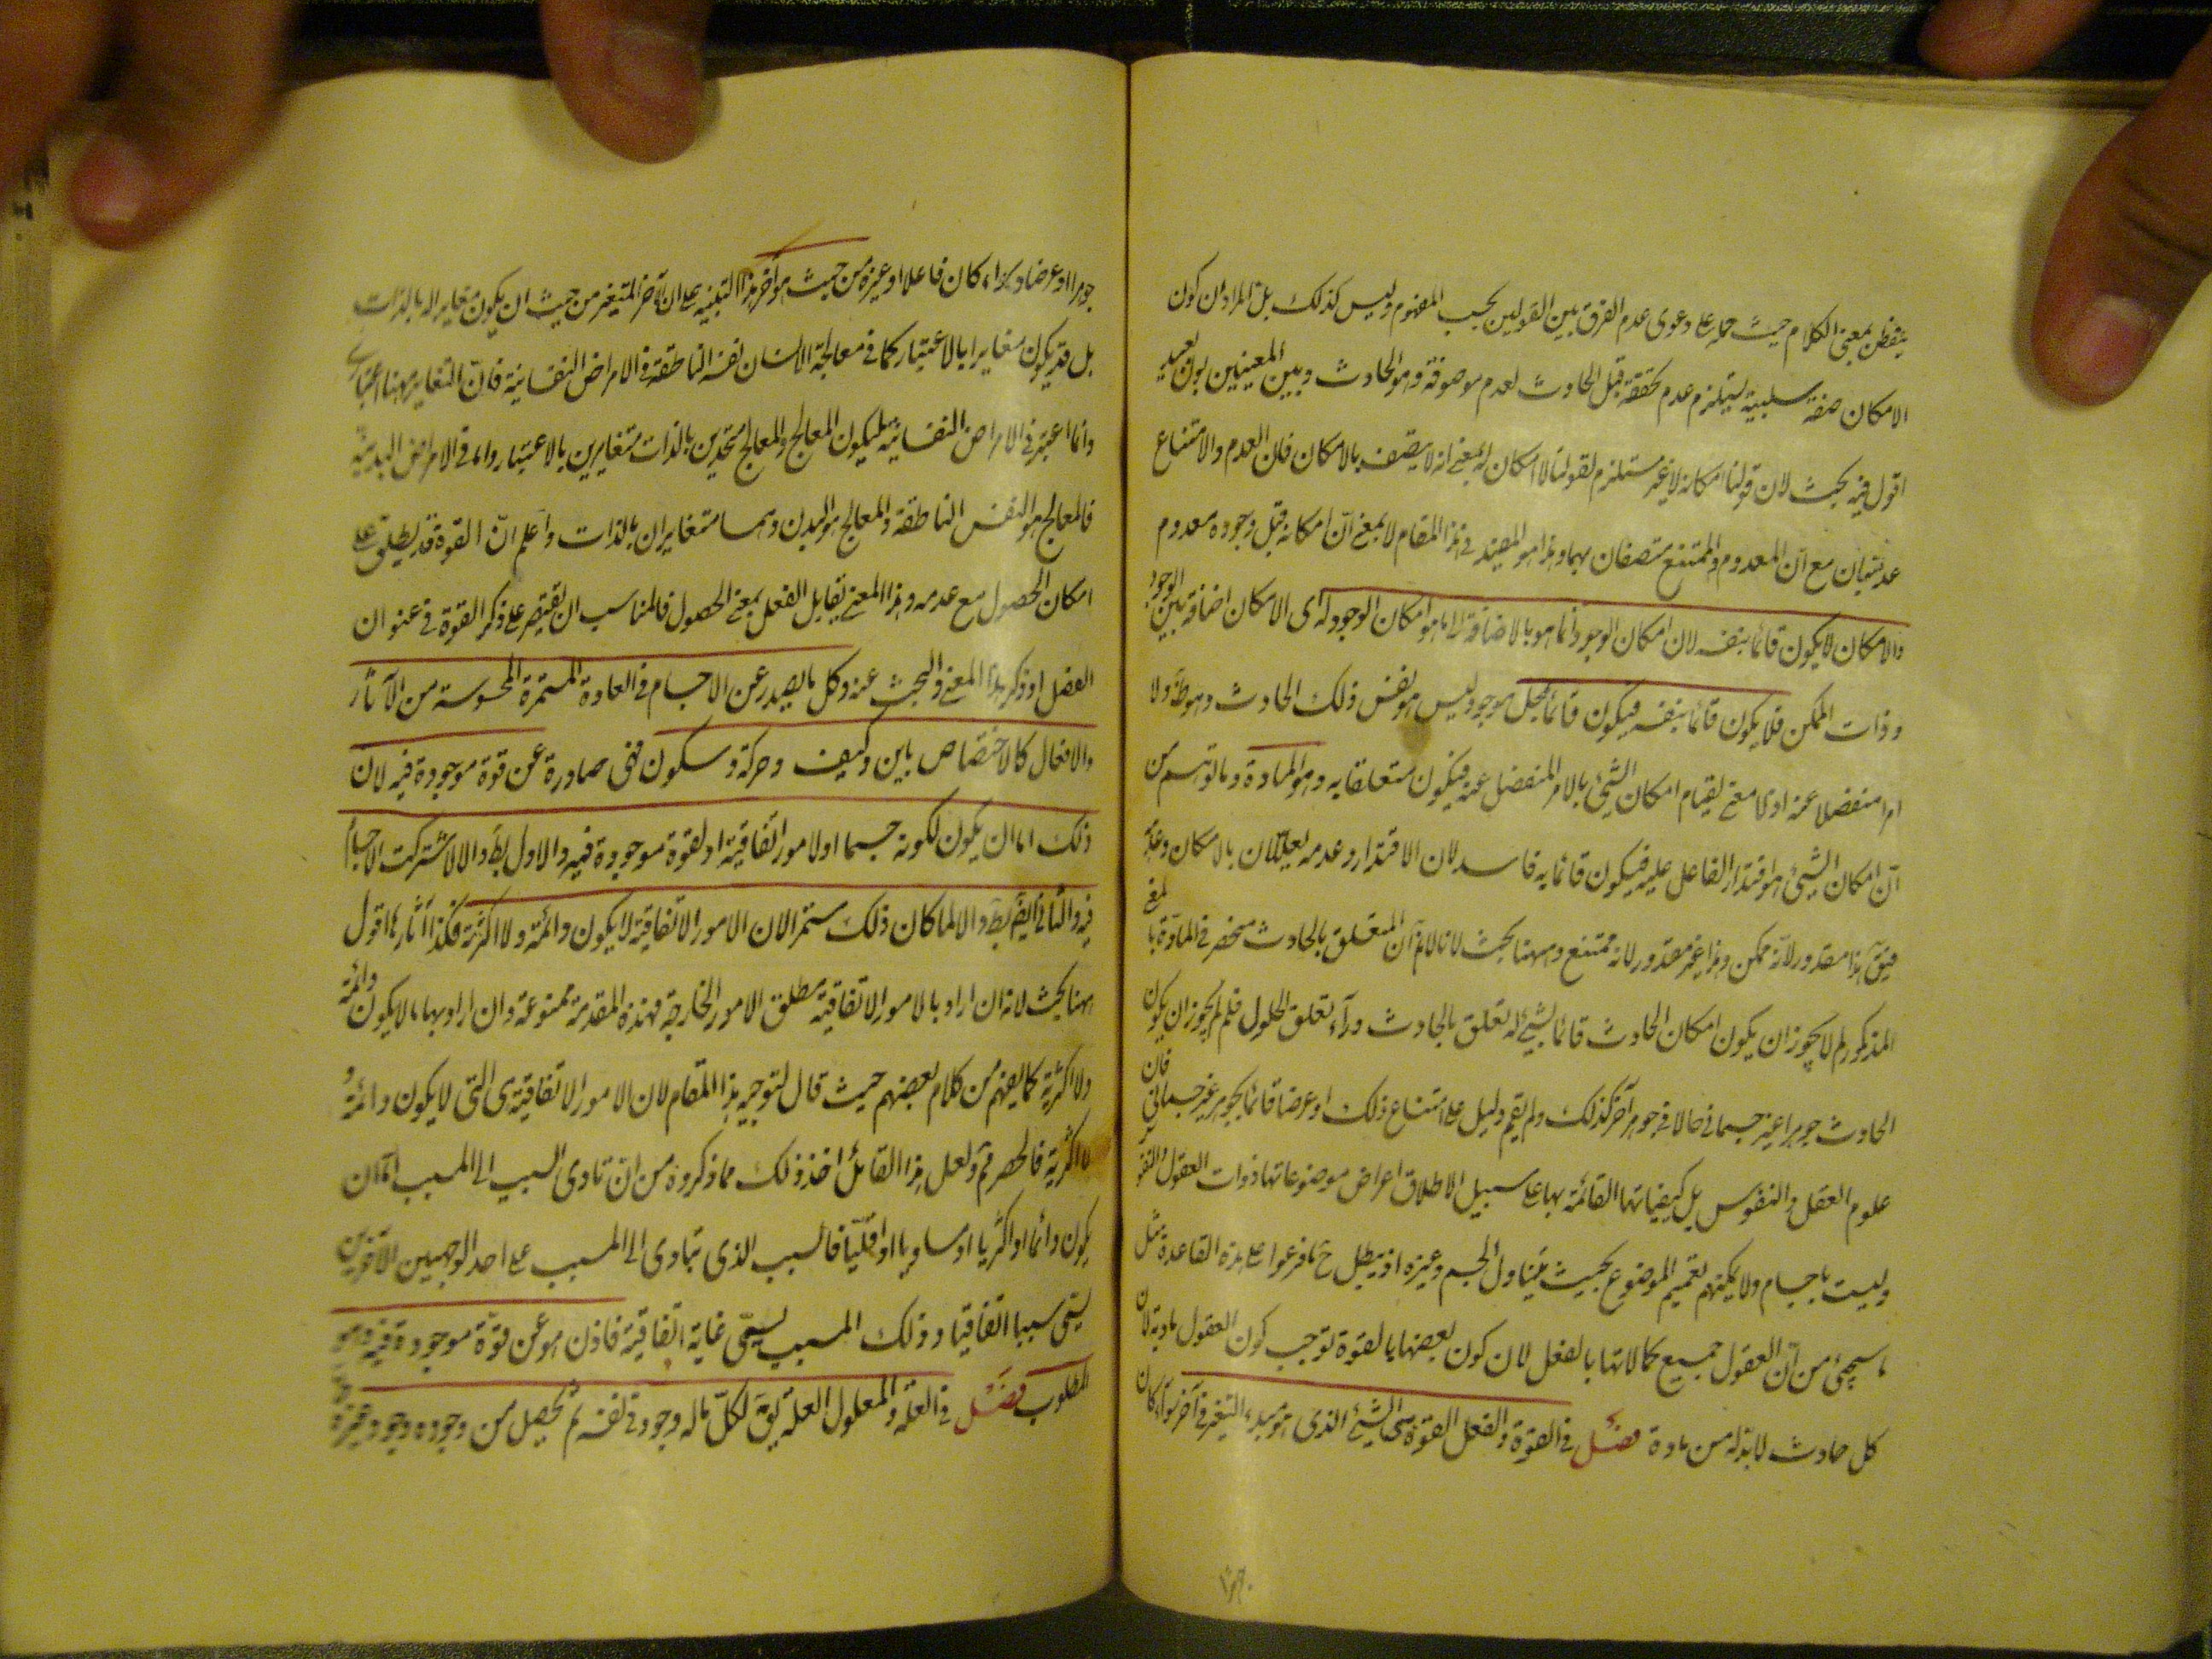 يتفطن بمعنى الكلام حيث حمله على دعوى عدم الفرق بين القولين بحسب المفهوم وليس كذلك بل المراد ان كون
الامكان صفة سلبية يستلزم عدم تحققه قبل الحادث لعدم موصوفه وهو الحادث وبين المعنيين بون بعيد
اقول فيه بحث لان قولنا امكانه لا غير مستلزم لقولنا لا امكان له بمعنى انه لا يتصف بالامكان فان العدم والامتناع
عدميتان مع ان المعدوم والممتنع متصفان بهما وهذا هو المفيد في هذا المقام لا بمعنى ان امكانه قبل وجوده معدوم
والامكان لا يكون قائما بنفسه لان امكان الوجود انما هو بالاضافة الى ما هو امكان الوجود له اى الامكان اضافة بين الوجود
وذات الممكن فلا يكون قائما بنفسه فيكون قائما بمحل موجود وليس هو نفس ذلك الحادث وهو ظ ولا
امرا منفصلا عنه اذ لا معنى لقيام امكان الشئ بالامر المنفصل عنه فيكون متعلقا به وهو المادة وما توهم من
ان امكان الشئ هو اقتدار الفاعل عليه فيكون قائما به فاسد لان الاقتدار وعدمه يعللان بالامكان وعدمه
فيق هذا مقدور لانه ممكن وهذا غير مقدور لانه ممتنع وههنا بحث لانا لا نم ان المتعلق بالحادث منحصر في المادة بالمعنى
المذكور لم لا يجوز ان يكون امكان الحادث قائما بشئ له تعلق بالحادث وراء تعلق الحلول فلم لم يجوز ان يكون
الحادث جوهرا غير جسمانى حالا في جوهر آخر كذلك ولم يقم دليل على امتناع ذلك او عرضا قائما بجوهر غير جسمانى فان
علوم العقل والنفوس بل كيفياتها القائمة بها على سبيل الاطلاق اعراض موضوعاتها ذوات العقول والنفوس
وليست باجسام ولا يمكنهم تعميم الموضوع بحيث يتناول الجسم وغيره اذ يبطل ح ما فرعوا على هذه القاعدة مثل
ما سيجئ من ان العقول جميع كمالاتها بالفعل لان كون بعضها بالقوة توجب كون العقول مادية لان
كل حادث لا بد له من مادة فصل في القوة والفعل القوة هى الشئ الذى هو مبدء التغير في آخر سواء كان
جوهرا او عرضا وسواء كان فاعلا او غيره من حيث هو آخر هذا التنبيه على ان الآخر المتغير من حيث ان يكون مغايرا له بالذات
بل قد يكون مغايرا بالاعتبار كما في معالجة الانسان نفسه الناطقة في الامراض النفسانية فان التغاير ههنا اعتبارى
وانما اعتبر في الامراض النفسانية ليكون المعالج والمعالج متحدين بالذات متغايرين بالاعتبار واما في الامراض البدنية
فالمعالج هو النفس الناطقة والمعالج هو البدن وهما متغايران بالذات واعلم ان القوة قد يطلق على
امكان الحصول مع عدمه وهذا المعنى يقابل الفعل بمعنى الحصول فالمناسب ان يقتصر على ذكر القوة في عنوان
الفصل او ذكر هذا المعنى والبحث عنه وكل ما يصدر عن الاجسام في العادة المستمرة المحسوسة من الآثار
والافعال كالاختصاص باين وكيف وحركة وسكون فهى صادرة عن قوة موجودة فيه لان
ذلك اما ان يكون لكونه جسما او لامور اتفاقية او لقوة موجودة فيه والاول بط والا لاشتركت الاجسام
فيه والثانى ايض بط والا لما كان ذلك مستمرا لان الامور الاتفاقية لا يكون دائمة ولا اكثرية فكذا آثارها اقول
ههنا بحث لانه ان اراد بالامور الاتفاقية مطلق الامور الخارجة فهذه المقدمة ممنوعة وان اراد بها ما لا يكون دائمة
ولا اكثرية كما يفهم من كلام بعضهم حيث قال لتوجيه هذا المقام لان الامور الاتفاقية هى التى لا يكون دائمة و
لا اكثرية فالحصر مم ولعل هذا القائل اخذ ذلك مما ذكروه من ان تادى السبب الى المسبب اما ان
يكون دائما او اكثريا او مساويا او اقليا فالسبب الذى يتادى الى المسبب على احد الوجهين الاخيرين
يسمى سببا اتفاقيا وذلك المسبب يسمى غاية اتفاقية فاذن هو عن قوة موجودة فيه وهو
المطلوب فصل في العلة والمعلول العلة يق لكل ما له وجود في نفسه ثم يحصل من وجوده وجود غيره